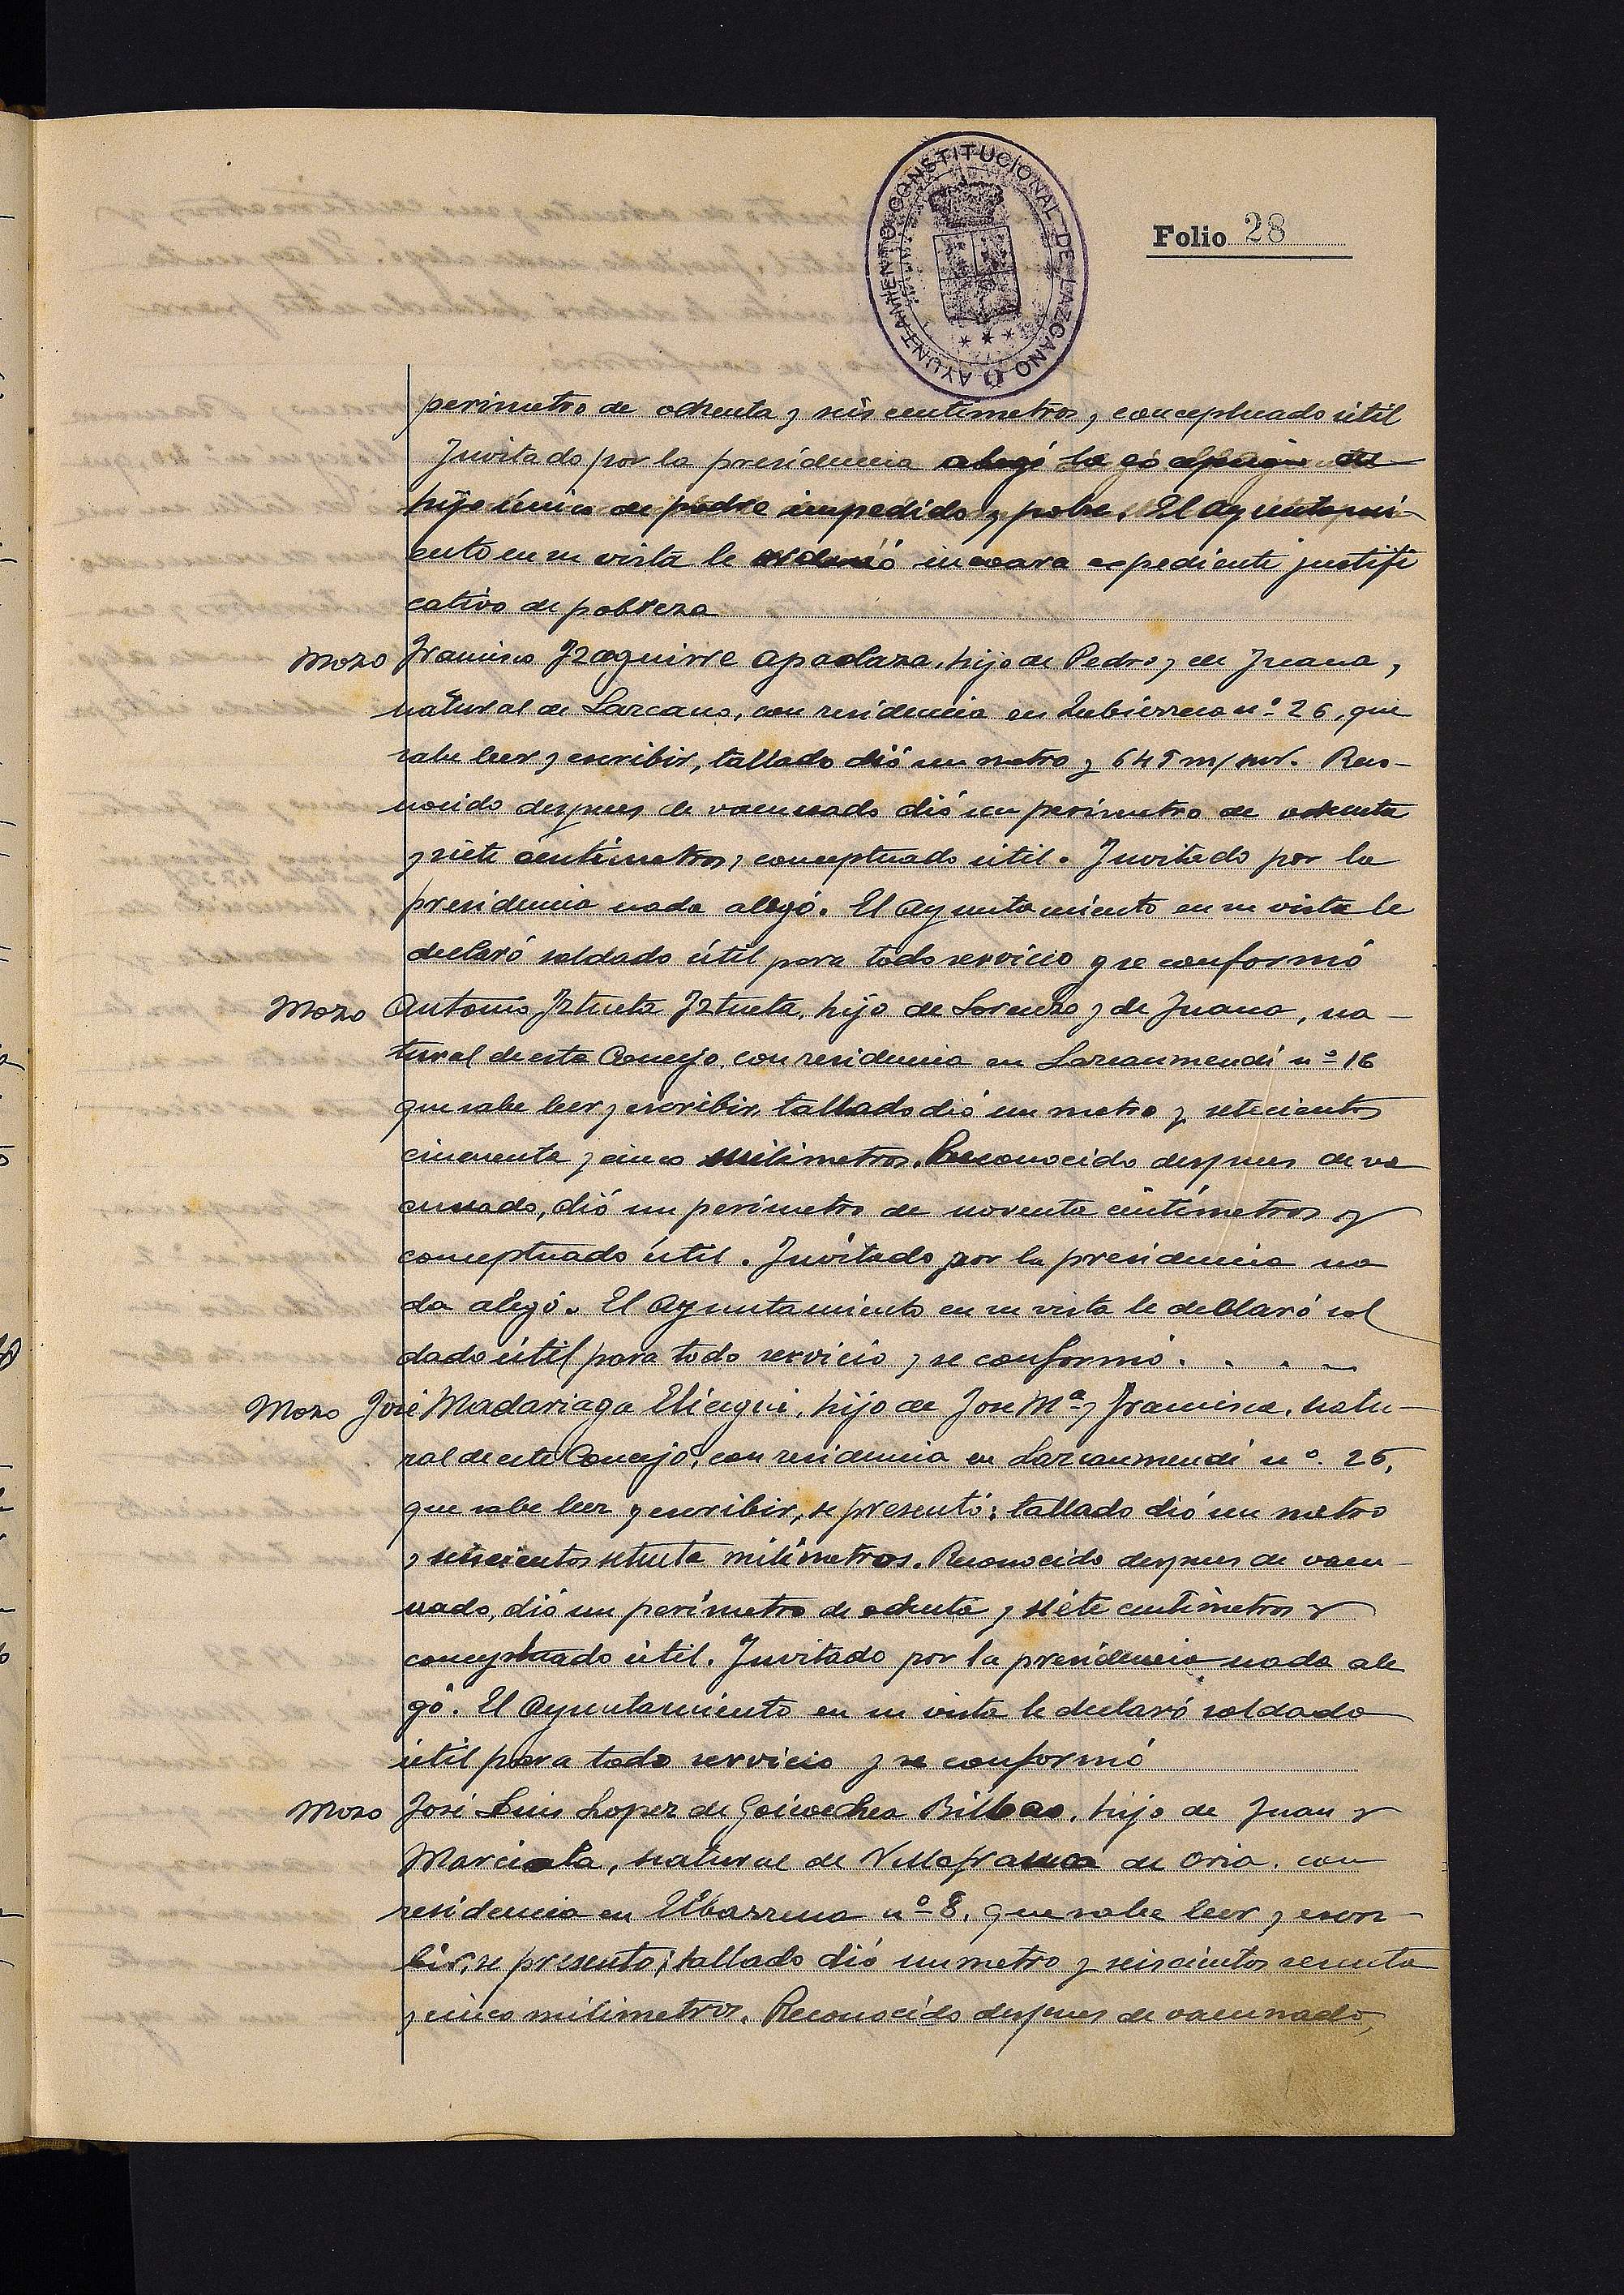 AYUNTAMIENTO CONSTITUCIONAL DE LAZCANO
Folio 28
perimetro de ochenta y seis centimetros y conceptuado útil
Invitado por la presidencia alegó la de
hijo único de padre impedido y pobre. El Ayuntami-
ento en su vista le ordenó incoara expediente justifi
cativo de pobreza
Mozo Francisco Izaguirre Apaolaza, hijo de Pedro y de Juana,
natural de Lazcano, con residencia en Zubierreca nº 26, que
sabe leer y escribir, tallado dió un metro y 645 m/m. Reco-
nocido despues de vacunado dió un perimetro de ochenta
y siete centímetros y conceptuado útil. Invitado por la
presidencia nada alegó. El Ayuntamiento en su vista le
declaró soldado útil para todo servicio y se conformó
Mozo Antonio Iztueta Iztueta, hijo de Lorenzo y de Juana, na-
tural de este Concejo, con residencia en Lazcaumendi nº 16
que sabe leer y escribir, tallado dió un metro y setecientos
cincuenta y cinco milimetros. Reconocido despues de va
cunado, dió un perímetro de noventa centímetros y
conceptuado útil. Invitado por la presidencia na
da alegó. El Ayuntamiento en su vista le declaró sol
dado útil para todo servicio y se conformó. . . . —
Mozo José Madariaga Elicegui, hijo de Jose Mª y Francisca, natu-
ral de este Concejo, con residencia en Lazcaumendi nº. 26,
que sabe leer y escribir, se presentó; tallado dió un metro
y seiscientos setenta milímetros. Reconocido despues de vacu-
nado, dió un perímetro de ochenta y siete centímetros y
conceptuado útil. Invitado por la presidencia nada ale
gó. El Ayuntamiento en su vista le declaró soldado
útil para todo servicio y se conformó
Mozo José Luis Lopez de Goicoechea Bilbao, hijo de Juan y
Marciala, natural de Villafranca de Oria, con
residencia en Elbarrena nº 8, que sabe leer y escri
bir, se presentó; tallado dió un metro y seiscientos sesenta
y cinco milimetros. Reconocido despues de vacunado,